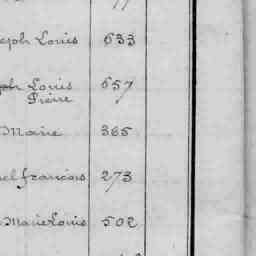 eph Louis 633
ph Louis 657
Pierre
Marie 365
el françois 273
Marie Louis 502